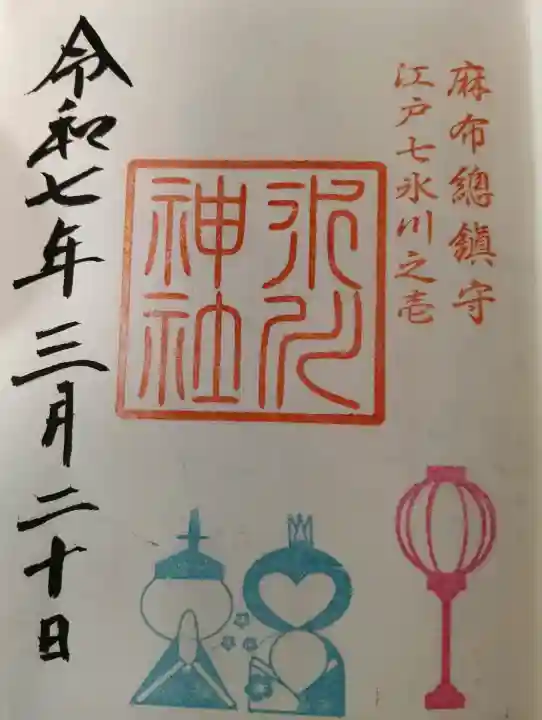 麻布總鎮守
江戸七氷川之壱
氷川
神社
令和七年三月二十日